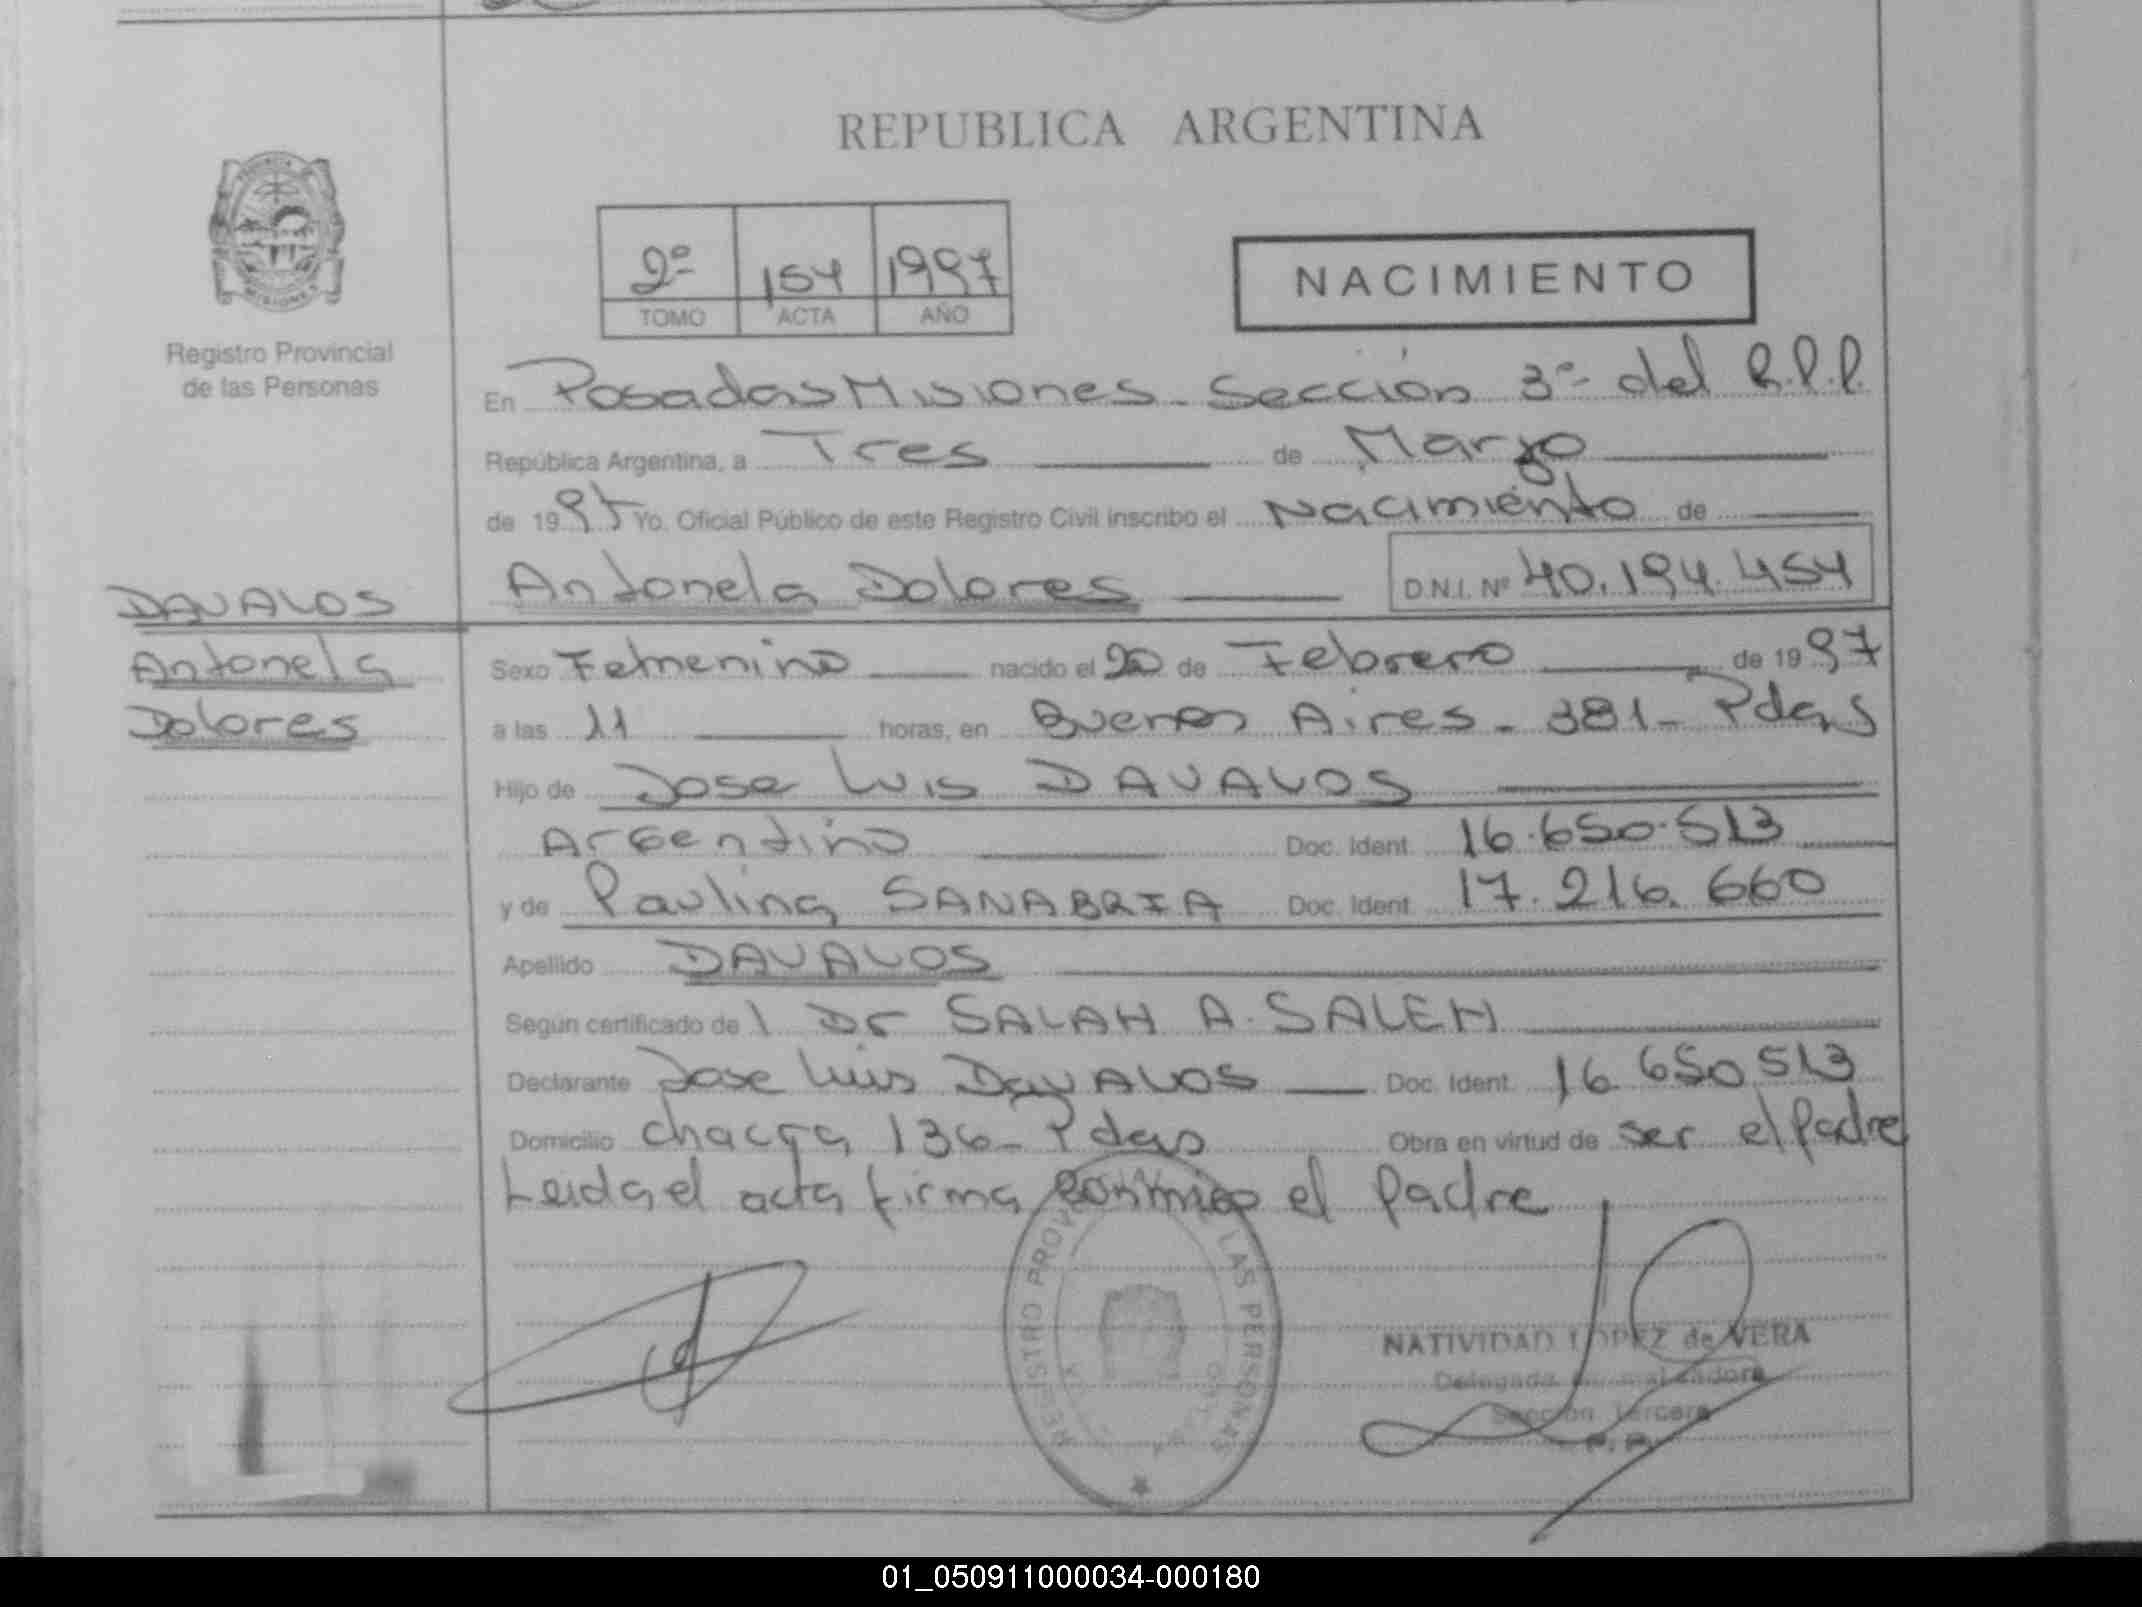 REPUBLICA ARGENTINA
2º 154 1997
TOMO ACTA AÑO
NACIMIENTO
Registro Provincial
de las Personas
En Posadas Misiones - Sección 3º del R.P.P.
República Argentina, a Tres de Marzo
de 1997 Yo, Oficial Público de este Registro Civil inscribo el Nacimiento de
Antonela Dolores D.N.I. Nº 40.194.454
DAVALOS
Antonela
Dolores
Sexo Femenino nacido el 20 de Febrero de 1997
a las 11 horas, en Buenos Aires - 381 - Pdas
Hijo de Jose Luis DAVALOS
Argentino Doc. Ident. 16.650.513
y de Paulina SANABRIA Doc. Ident. 17.216.660
Apellido DAVALOS
Según certificado de l Dr SALAH A. SALEH
Declarante Jose Luis DavALOS Doc. Ident. 16 650 513
Domicilio chacra 136 - Pdas Obra en virtud de ser el Padre
Leida el acta firma conmigo el Padre
REGISTRO PROV LAS PERSONAS
NATIVIDAD LOPEZ de VERA
Delegada
Sección Tercera
01_050911000034-000180